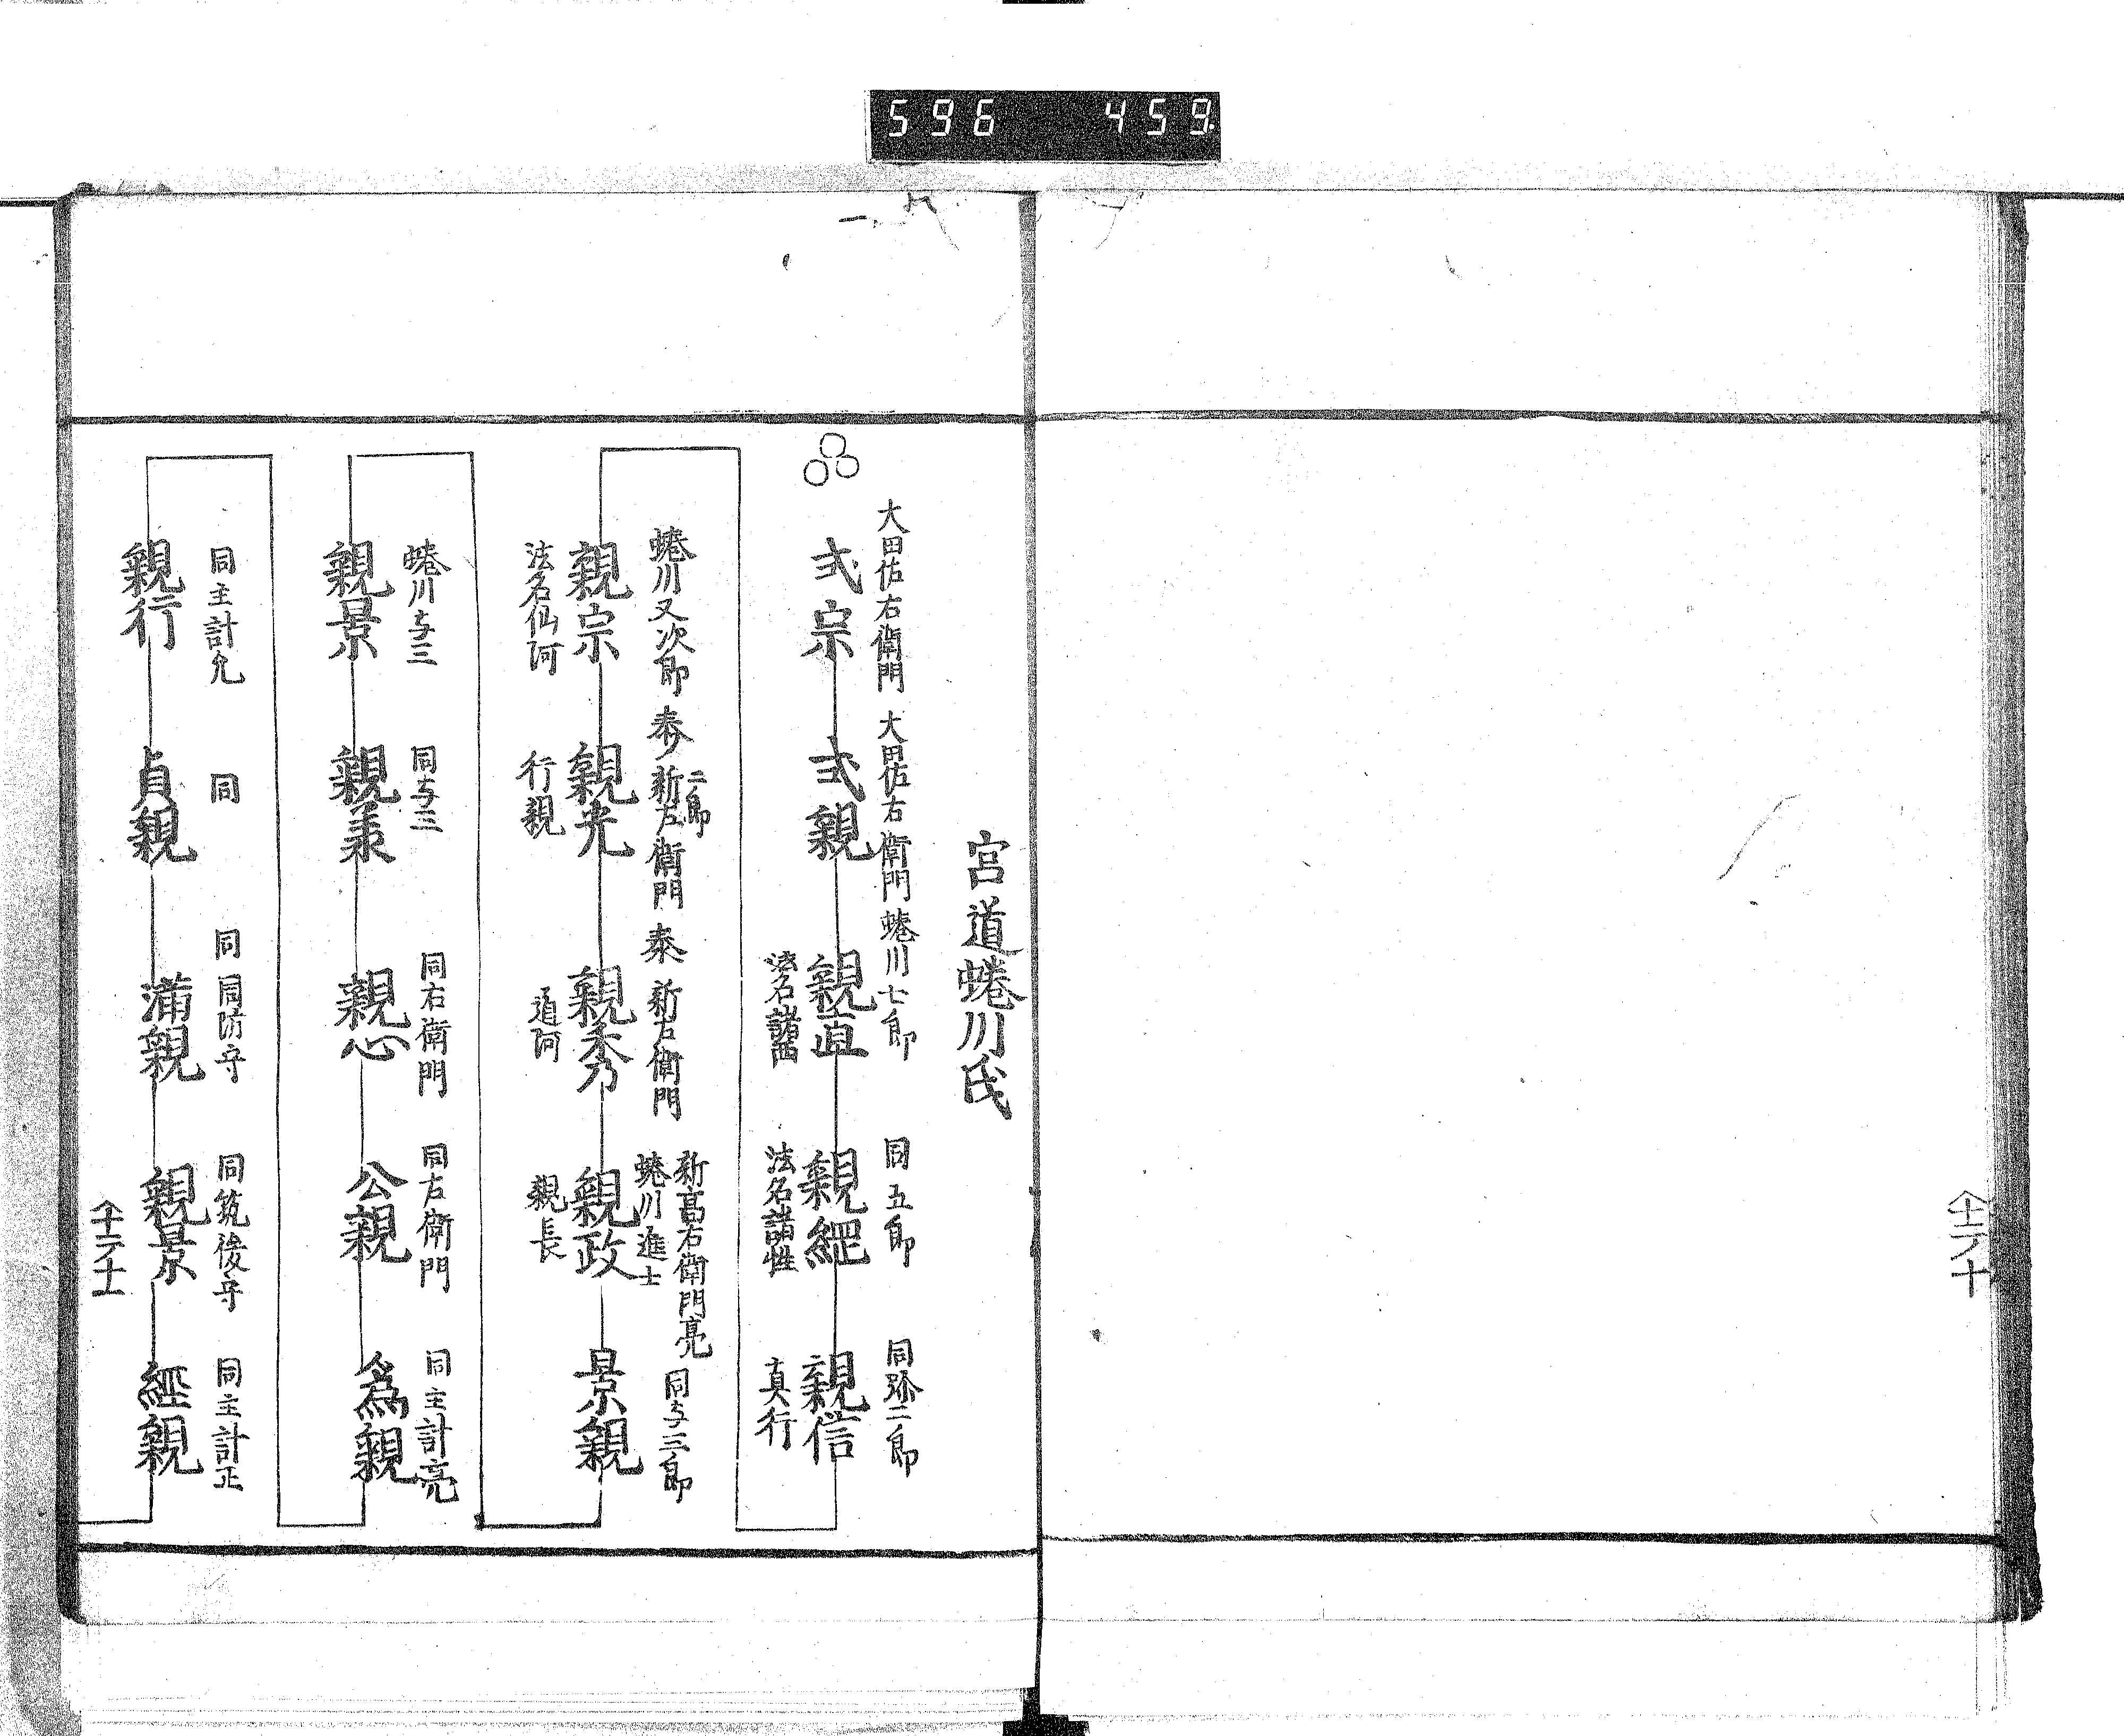 596 459
宮道蜷川氏
大田佐右衛門
弍宗
大田佐右衛門
弍親
蜷川七郎
親直
同五郎
親縄
法名諸性
同孫二郎
親信
真行
蜷川又次郎
親宗
法名仙阿
二郎
新左衛門
親光
行親
新右衛門
親秀
道阿
新髙右衛門亮
蜷川進士
親政
親長
同与三郎
景親
蜷川与三
親景
同与三
親兼
同右衛門
親心
同右衛門
公親
同主計亮
為親
同主計允
親行
同
貞親
同周防守
満親
同筑後守
親景
同主計正
經親